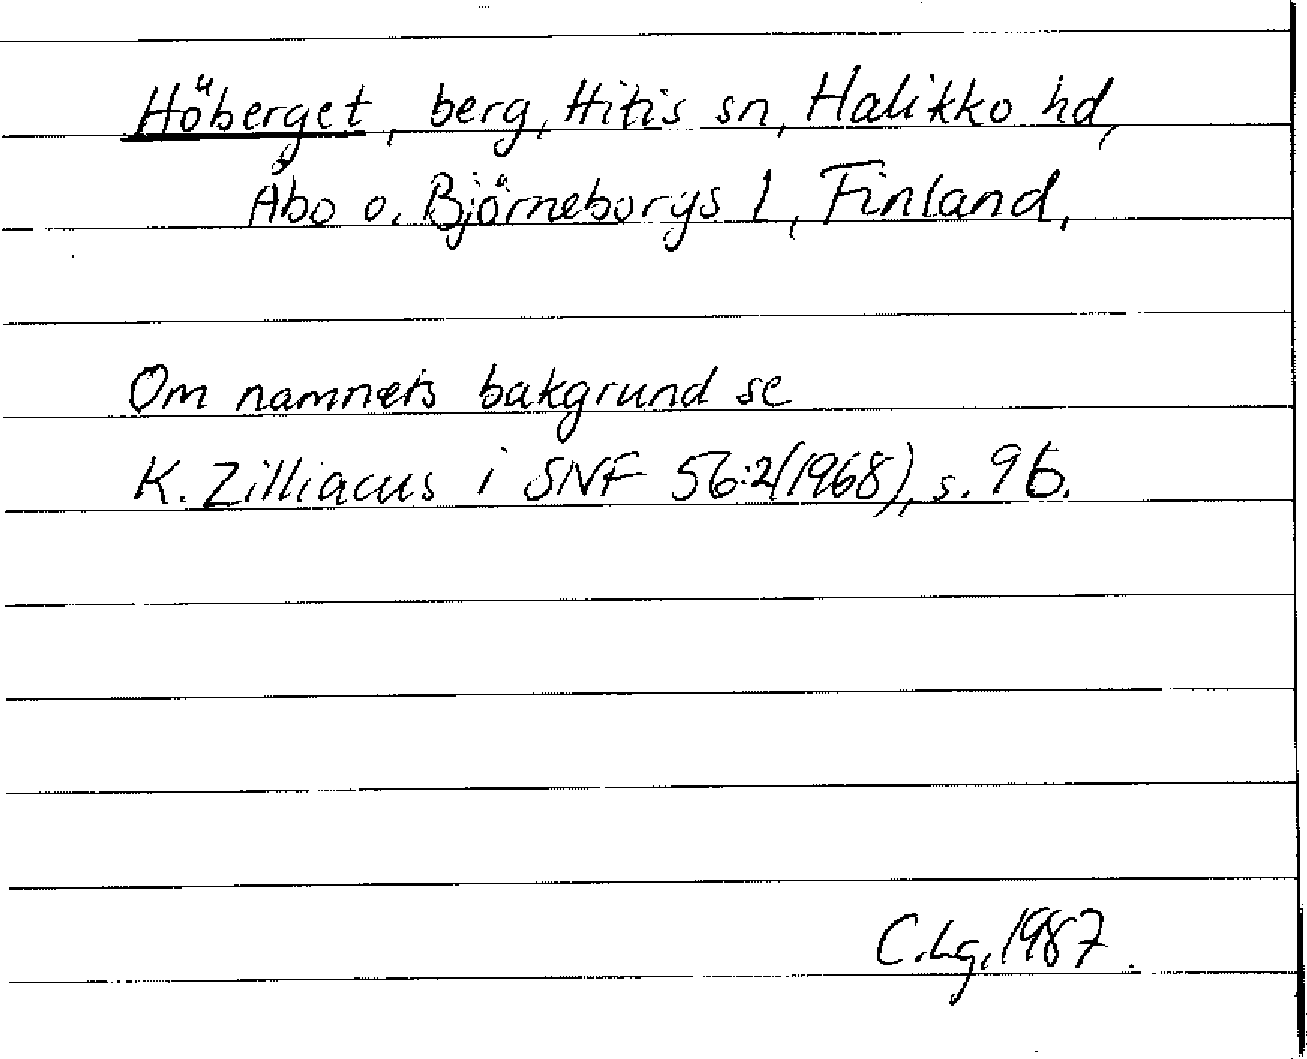 Höberget, berg, Hitis sn, Halikko hd,
Åbo o. Björneborgs l, Finland.
Om namnets bakgrund se
K. Zilliacus i SNF 56:2(1968), s. 96.
C.Lg. 1987.